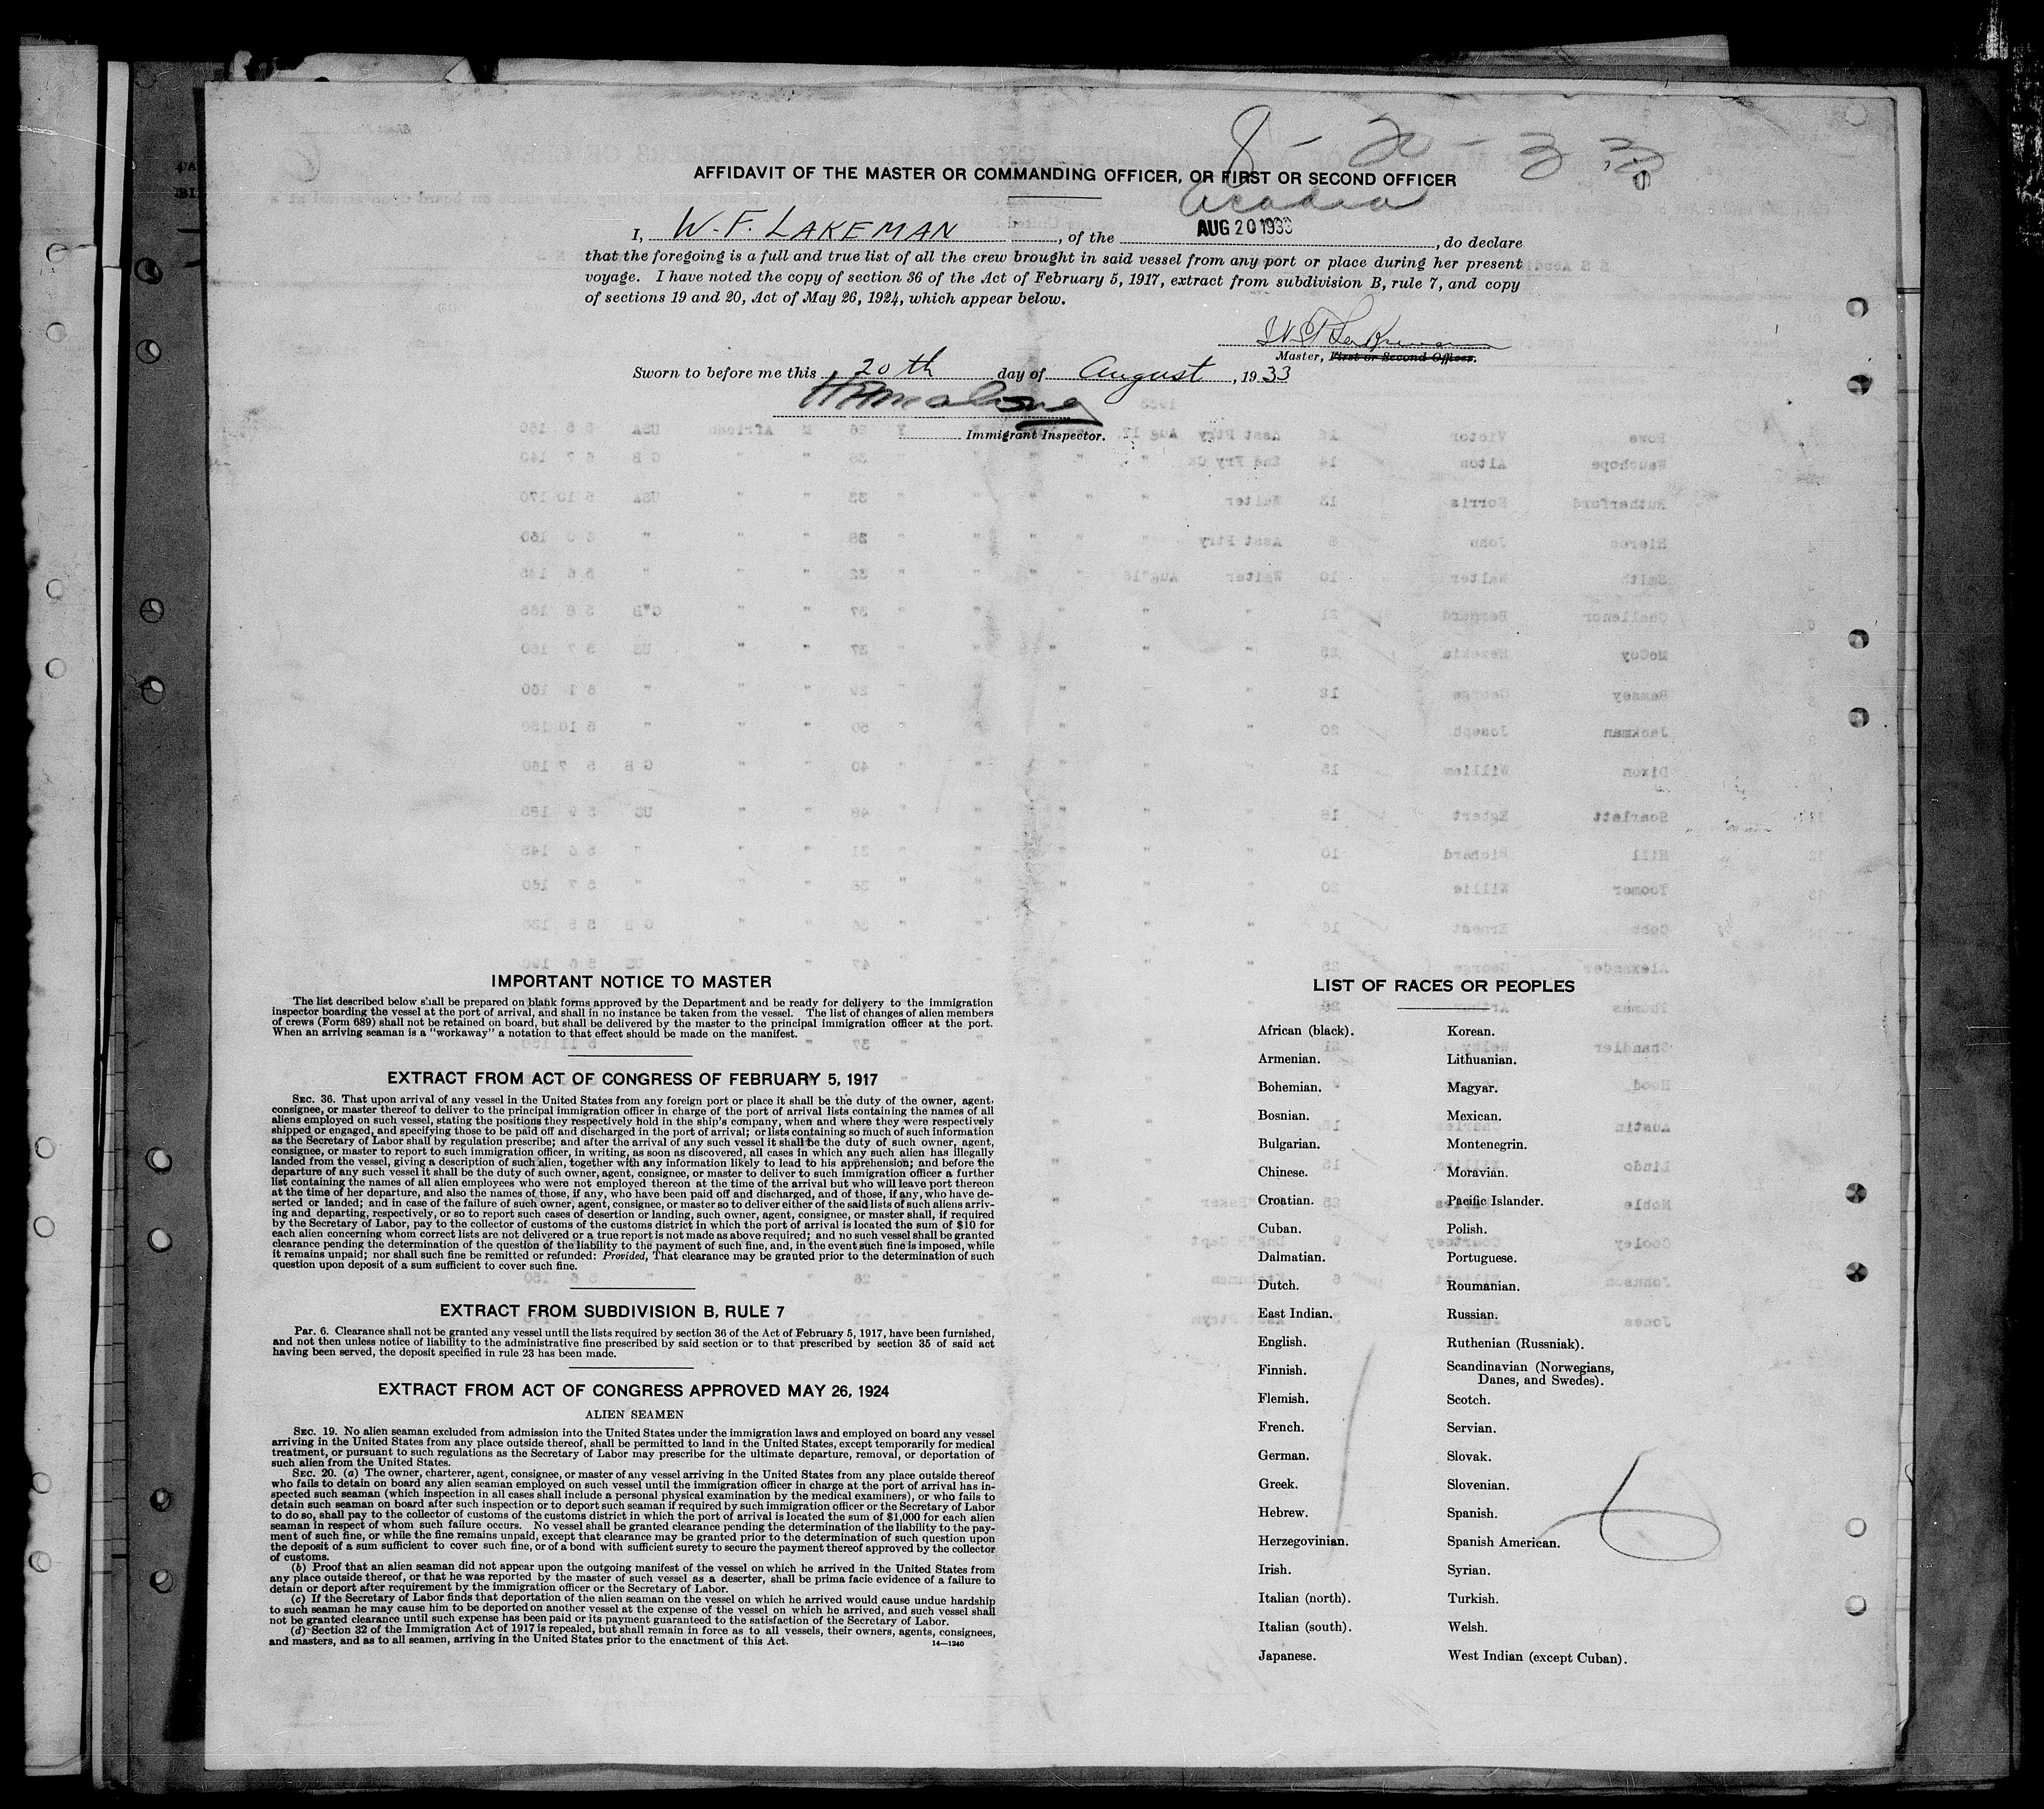 8-20-33
AFFIDAVIT OF THE MASTER OR COMMANDING OFFICER, OR FIRST OR SECOND OFFICER
Acadia
AUG 20 1933
I, W. F. LAKEMAN, of the , do declare
that the foregoing is a full and true list of all the crew brought in said vessel from any port or place during her present
voyage. I have noted the copy of section 36 of the Act of February 5, 1917, extract from subdivision B, rule 7, and copy
of sections 19 and 20, Act of May 26, 1924, which appear below.
W F Lakeman
Master, First or Second Officer.
Sworn to before me this 20th day of August, 1933
Immigrant Inspector.
IMPORTANT NOTICE TO MASTER
The list described below shall be prepared on blank forms approved by the Department and be ready for delivery to the immigration
inspector boarding the vessel at the port of arrival, and shall in no instance be taken from the vessel. The list of changes of alien members
of crews (Form 689) shall not be retained on board, but shall be delivered by the master to the principal immigration officer at the port.
When an arriving seaman is a "workaway" a notation to that effect should be made on the manifest.
EXTRACT FROM ACT OF CONGRESS OF FEBRUARY 5, 1917
SEC. 36. That upon arrival of any vessel in the United States from any foreign port or place it shall be the duty of the owner, agent,
consignee, or master thereof to deliver to the principal immigration officer in charge of the port of arrival lists containing the names of all
aliens employed on such vessel, stating the positions they respectively hold in the ship's company, when and where they were respectively
shipped or engaged, and specifying those to be paid off and discharged in the port of arrival; or lists containing so much of such information
as the Secretary of Labor shall by regulation prescribe; and after the arrival of any such vessel it shall be the duty of such owner, agent,
consignee, or master to report to such immigration officer, in writing, as soon as discovered, all cases in which any such alien has illegally
landed from the vessel, giving a description of such alien, together with any information likely to lead to his apprehension; and before the
departure of any such vessel it shall be the duty of such owner, agent, consignee, or master to deliver to such immigration officer a further
list containing the names of all alien employees who were not employed thereon at the time of the arrival but who will leave port thereon
at the time of her departure, and also the names of those, if any, who have been paid off and discharged, and of those, if any, who have de-
serted or landed; and in case of the failure of such owner, agent, consignee, or master so to deliver either of the said lists of such aliens arriv-
ing and departing, respectively, or so to report such cases of desertion or landing, such owner, agent, consignee, or master shall, if required
by the Secretary of Labor, pay to the collector of customs of the customs district in which the port of arrival is located the sum of $10 for
each alien concerning whom correct lists are not delivered or a true report is not made as above required; and no such vessel shall be granted
clearance pending the determination of the question of the liability to the payment of such fine, and, in the event such fine is imposed, while
it remains unpaid; nor shall such fine be remitted or refunded: Provided, That clearance may be granted prior to the determination of such
question upon deposit of a sum sufficient to cover such fine.
EXTRACT FROM SUBDIVISION B, RULE 7
Par. 6. Clearance shall not be granted any vessel until the lists required by section 36 of the Act of February 5, 1917, have been furnished,
and not then unless notice of liability to the administrative fine prescribed by said section or to that prescribed by section 35 of said act
having been served, the deposit specified in rule 23 has been made.
EXTRACT FROM ACT OF CONGRESS APPROVED MAY 26, 1924
ALIEN SEAMEN
SEC. 19. No alien seaman excluded from admission into the United States under the immigration laws and employed on board any vessel
arriving in the United States from any place outside thereof, shall be permitted to land in the United States, except temporarily for medical
treatment, or pursuant to such regulations as the Secretary of Labor may prescribe for the ultimate departure, removal, or deportation of
such alien from the United States.
SEC. 20. (a) The owner, charterer, agent, consignee, or master of any vessel arriving in the United States from any place outside thereof
who fails to detain on board any alien seaman employed on such vessel until the immigration officer in charge at the port of arrival has in-
spected such seaman (which inspection in all cases shall include a personal physical examination by the medical examiners), or who fails to
detain such seaman on board after such inspection or to deport such seaman if required by such immigration officer or the Secretary of Labor
to do so, shall pay to the collector of customs of the customs district in which the port of arrival is located the sum of $1,000 for each alien
seaman in respect of whom such failure occurs. No vessel shall be granted clearance pending the determination of the liability to the pay-
ment of such fine, or while the fine remains unpaid, except that clearance may be granted prior to the determination of such question upon
the deposit of a sum sufficient to cover such fine, or of a bond with sufficient surety to secure the payment thereof approved by the collector
of customs.
(b) Proof that an alien seaman did not appear upon the outgoing manifest of the vessel on which he arrived in the United States from
any place outside thereof, or that he was reported by the master of such vessel as a deserter, shall be prima facie evidence of a failure to
detain or deport after requirement by the immigration officer or the Secretary of Labor.
(c) If the Secretary of Labor finds that deportation of the alien seaman on the vessel on which he arrived would cause undue hardship
to such seaman he may cause him to be deported on another vessel at the expense of the vessel on which he arrived, and such vessel shall
not be granted clearance until such expense has been paid or its payment guaranteed to the satisfaction of the Secretary of Labor.
(d) Section 32 of the Immigration Act of 1917 is repealed, but shall remain in force as to all vessels, their owners, agents, consignees,
and masters, and as to all seamen, arriving in the United States prior to the enactment of this Act.
14—1240
LIST OF RACES OR PEOPLES
African (black).
Armenian.
Bohemian.
Bosnian.
Bulgarian.
Chinese.
Croatian.
Cuban.
Dalmatian.
Dutch.
East Indian.
English.
Finnish.
Flemish.
French.
German.
Greek.
Hebrew.
Herzegovinian.
Irish.
Italian (north).
Italian (south).
Japanese.
Korean.
Lithuanian.
Magyar.
Mexican.
Montenegrin.
Moravian.
Pacific Islander.
Polish.
Portuguese.
Roumanian.
Russian.
Ruthenian (Russniak).
Scandinavian (Norwegians,
Danes, and Swedes).
Scotch.
Servian.
Slovak.
Slovenian.
Spanish.
Spanish American.
Syrian.
Turkish.
Welsh.
West Indian (except Cuban).